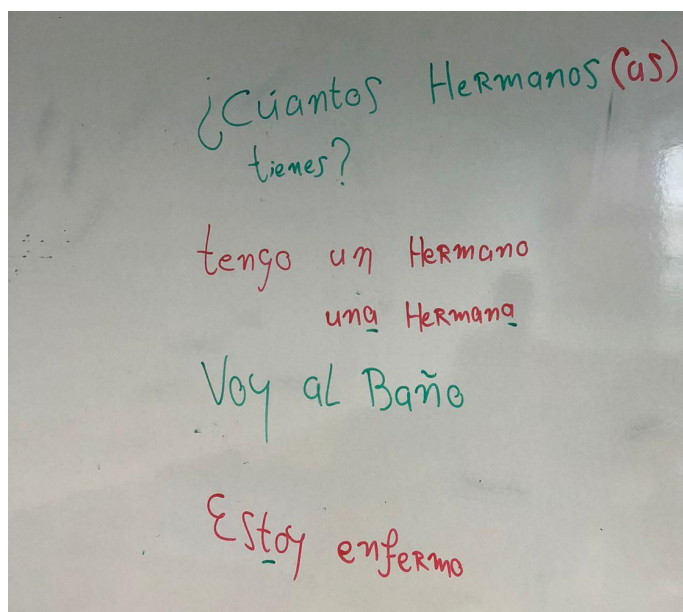 ¿Cúantos Hermanos (as)
tienes?
tengo un Hermano
una Hermana
Voy al Baño
Estoy enfermo